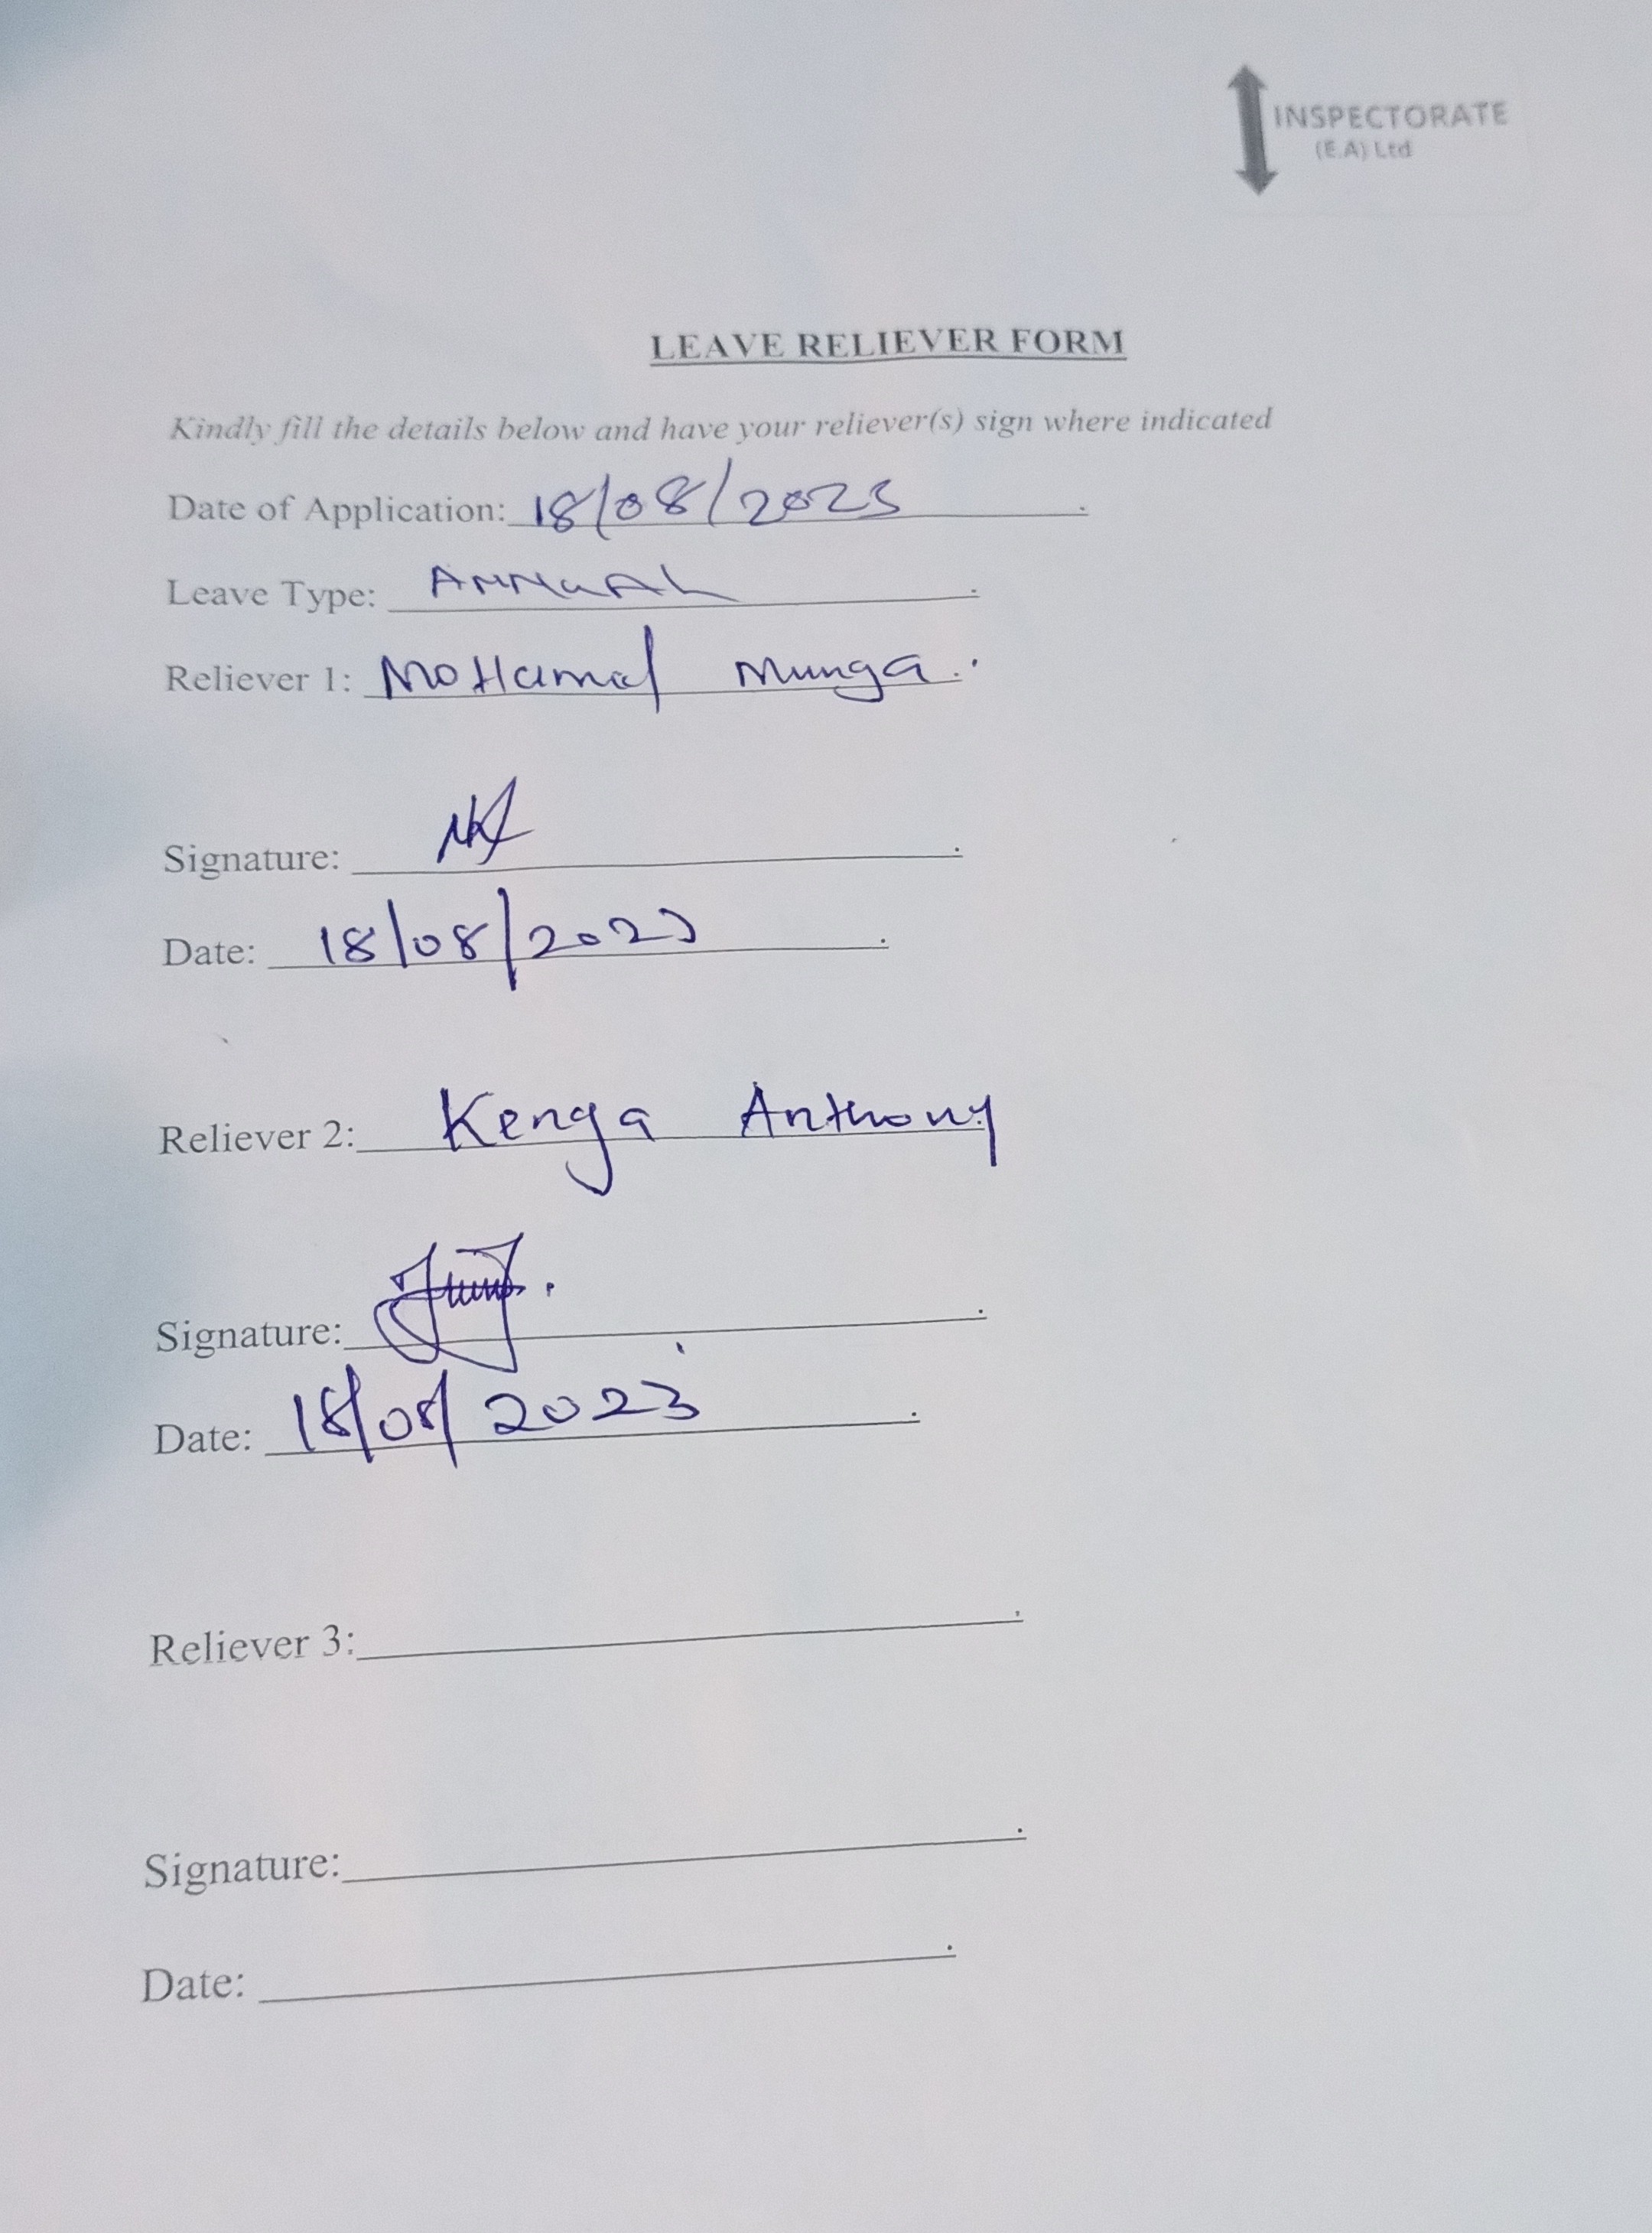 INSPECTORATE
(E.A) Ltd
LEAVE RELIEVER FORM
Kindly fill the details below and have your reliever(s) sign where indicated
Date of Application: 18/08/2023
Leave Type: ANNUAL
Reliever 1: MoHamad Munga.
Signature:
Date: 18/08/2023
Reliever 2: Kenga Anthony
Signature:
Date: 18/08/2023
Reliever 3:
Signature:
Date: